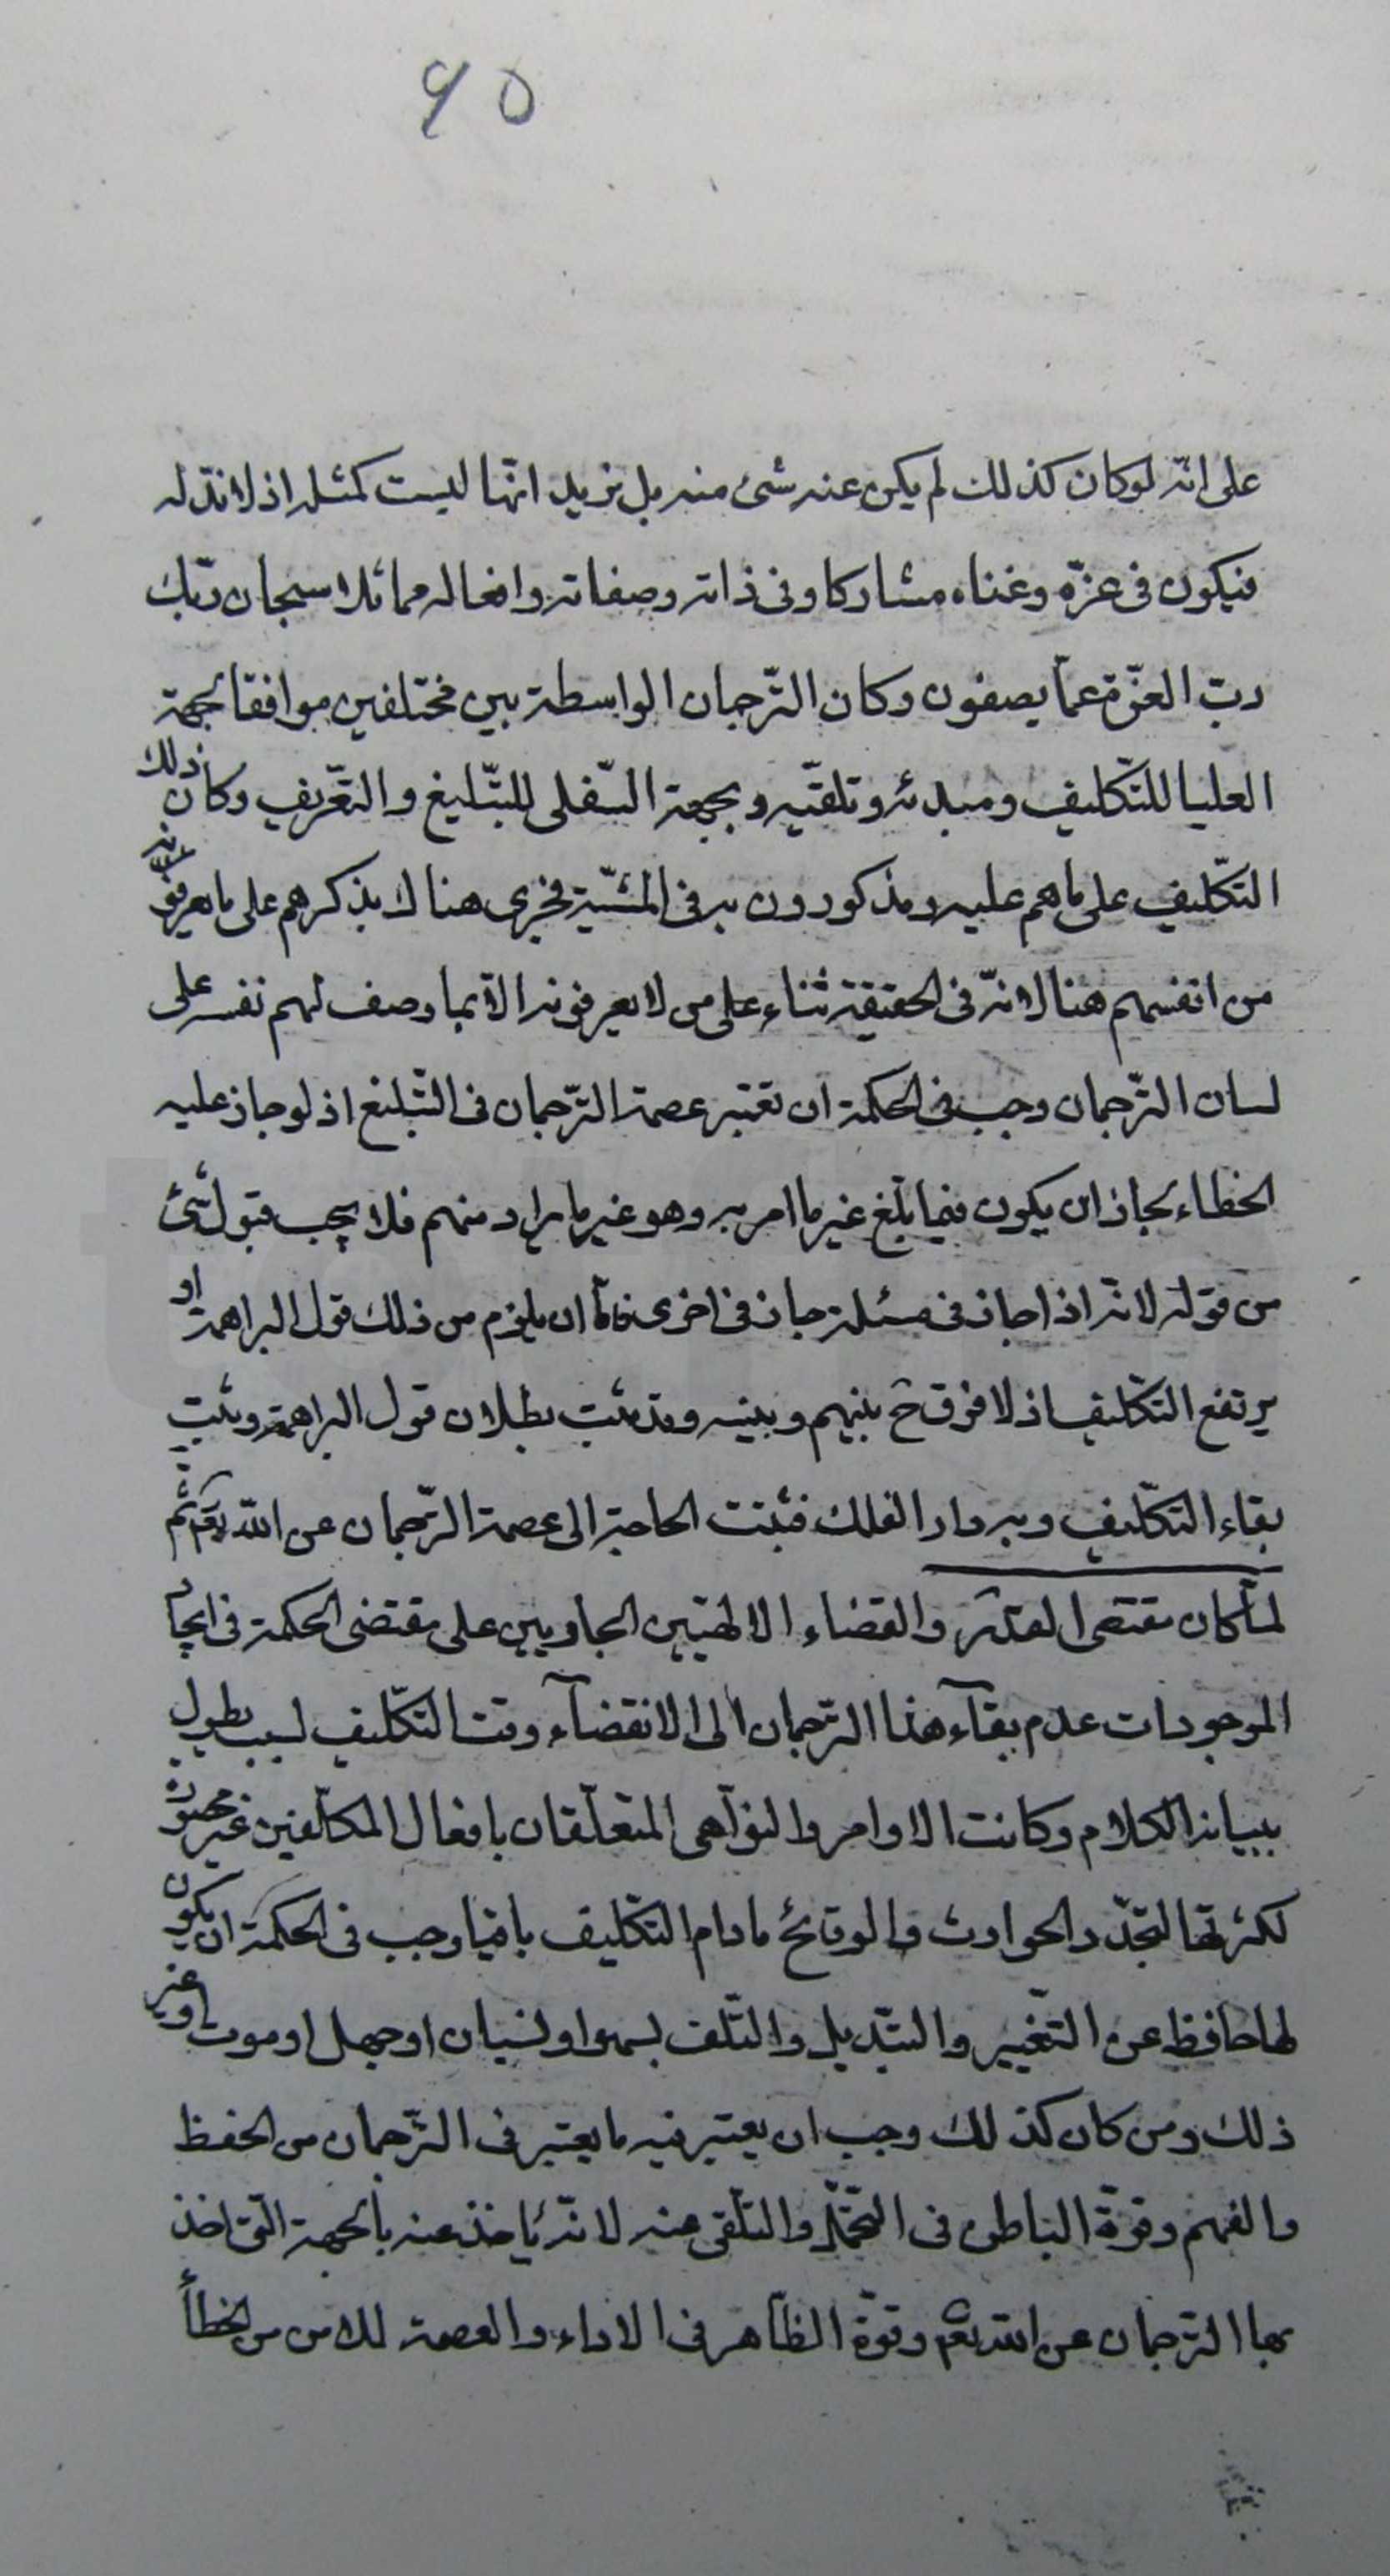 ۶۵
على انّه لو كان كذلك لم يكن عنه شئ منه بل نريد انّها ليست كمثله اذ لا ندّ له
فيكون فى عزّه وغناه مشاركا وفى ذاته وصفاته وافعاله مماثلا سبحان ربّك
ربّ العزّة عمّا يصفون وكان التّرجمان الواسطة بين مختلفين موافقا بجهة
العليا للتّكليف ومبدئه وتلقّيه وبجهة السّفلى للتّبليغ والتّعريف وكان ذلك
التّكليف على ما هم عليه ومذكورون به فى المشيّة فجرى هناك بذكرهم على ما يعرفونه
من انفسهم هنا لانّه فى الحقيقة ثناء على من لا يعرفونه الّا بما وصف لهم نفسه على
لسان التّرجمان وجب فى الحكمة ان تعتبر عصمة التّرجمان فى التّبليغ اذ لو جاز عليه
الخطاء لجاز ان يكون فيما بلّغ غير ما امر به وهو غير ما يراد منهم فلا يجب قبول شئ
من قوله لانّه اذا جاز فى مسئلة جاز فى اخرى فامّا ان يلزم من ذلك قول البراهمة او
يرتفع التّكليف اذ لا فرق ح بينهم وبينه وقد ثبت بطلان قول البراهمة وثبت
بقاء التّكليف وبه دار الفلك فثبتت الحاجة الى عصمة التّرجمان عن اللّه تعم ثم
لمّا كان مقتضى القدر والقضاء الالهيّين الجاريين على مقتضى الحكمة فى ايجاد
الموجودات عدم بقآء هذا التّرجمان الى الانقضآء وقت التّكليف لسبب يطول
ببيانه الكلام وكانت الاوامر والنّواهى المتعلّقان بافعال المكلّفين غير محصورة
لكثرتها لتجدّد الحوادث والوقائع ما دام التّكليف باقيا وجب فى الحكمة ان يكون
لها حافظ عن التّغيير والتّبديل والتّلف لسهو او نسيان او جهل او موت او غير
ذلك ومن كان كذلك وجب ان يعتبر فيه ما يعتبر فى التّرجمان من الحفظ
والفهم وقوّة الباطن فى التّحمّل والتّلقى عنه لانّه ياخذ عنه بالجهة الّتى اخذ
بها التّرجمان عن اللّه تعم وقوّة الظّاهر فى الاداء والعصمة للامن من الخطأ